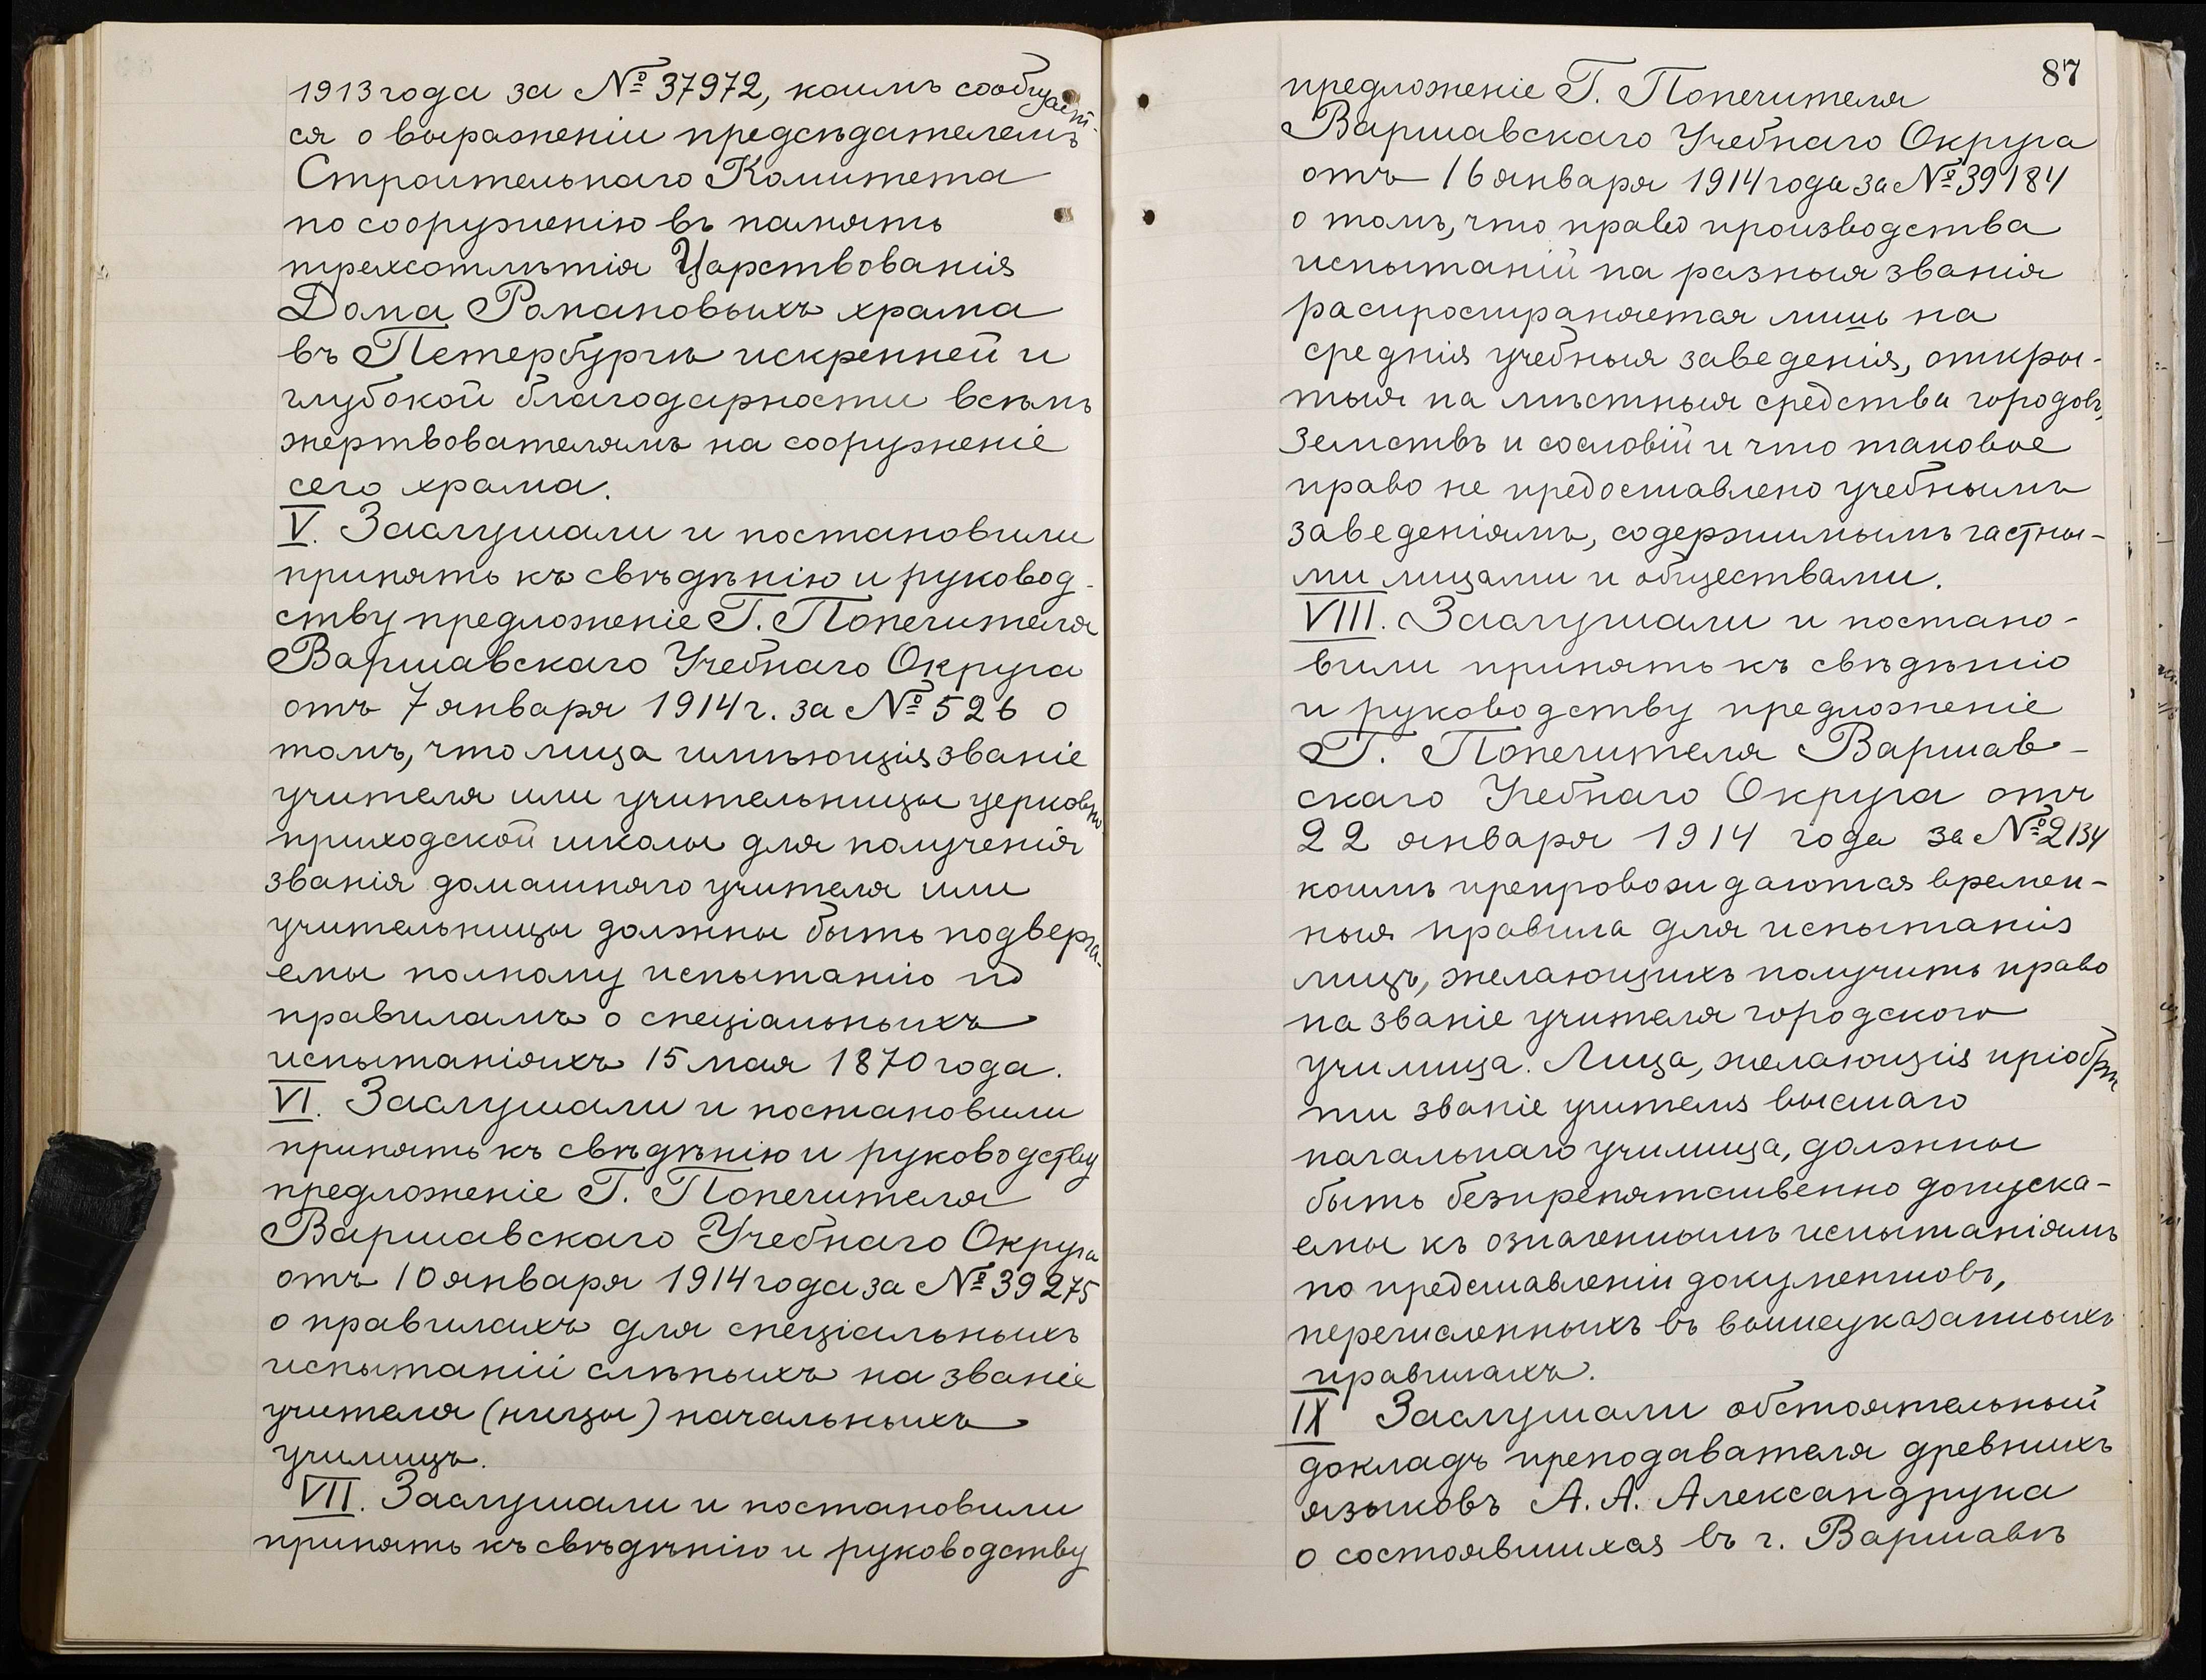 1913 года за № 37972, коимъ сообщает-
ся о выраженіи предсѣдателемъ
Строительнаго Комитета
по сооруженію въ память
трехсотлѣтія Царствованія
Дома Романовыхъ храма
въ Петербургѣ искренней и
глубокой благодарности всѣмъ
жертвователямъ на сооруженіе
сего храма.
V. Заслушали и постановили
принять къ свѣдѣнію и руковод-
ству предложеніе Г. Попечителя
Варшавскаго Учебнаго Округа
отъ 7 января 1914 г. за № 526 о
томъ, что лица имѣющія званіе
учителя или учительницы церковно-
приходской школы для полученія
званія домашняго учителя или
учительницы должны быть подверга-
емы полному испытанію по
правиламъ о спеціальныхъ
испытаніяхъ 15 мая 1870 года.
VI. Заслушали и постановили
принять къ свѣдѣнію и руководству
предложеніе Г. Попечителя
Варшавскаго Учебнаго Округа
отъ 10 января 1914 года за № 39275
о правилахъ для спеціальныхъ
испытаній слѣпыхъ на званіе
учителя (ницы) начальныхъ
училищъ.
VII. Заслушали и постановили
принять къ свѣдѣнію и руководству
87
предложеніе Г. Попечителя
Варшавскаго Учебнаго Округа
отъ 16 января 1914 года за № 39184
о томъ, что право производства
испытаній на разныя званія
распространяется лишь на
среднія учебныя заведенія, откры-
тыя на мѣстныя средства городовъ,
земствъ и сословій и что таковое
право не предоставлено учебнымъ
заведеніямъ, содержимымъ частны-
ми лицами и обществами.
VIII. Заслушали и постано-
вили принять къ свѣдѣнію
и руководству предложеніе
Г. Попечителя Варшав-
скаго Учебнаго Округа отъ
22 января 1914 года за № 2134
коимъ препровождаются времен-
ныя правила для испытанія
лицъ, желающихъ получить право
на званіе учителя городского
училища. Лица, желающія пріобрѣ
ти званіе учителя высшаго
начальнаго училища, должны
быть безпрепятственно допуска-
емы къ означеннымъ испытаніямъ
по представленіи документовъ,
перечисленныхъ въ вышеуказанныхъ
правилахъ.
IX Заслушали обстоятельный
докладъ преподавателя древнихъ
языковъ А. А. Александрука
о состоявшихся въ г. Варшавѣ